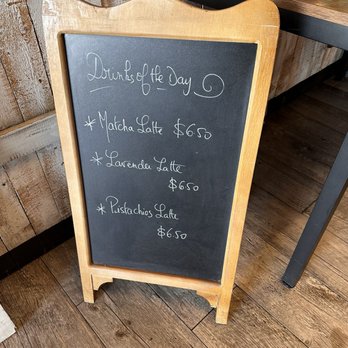 Drinks of the Day
* Matcha Latte $6.50
* Lavender Latte
$6.50
* Pistachios Latte
$6.50